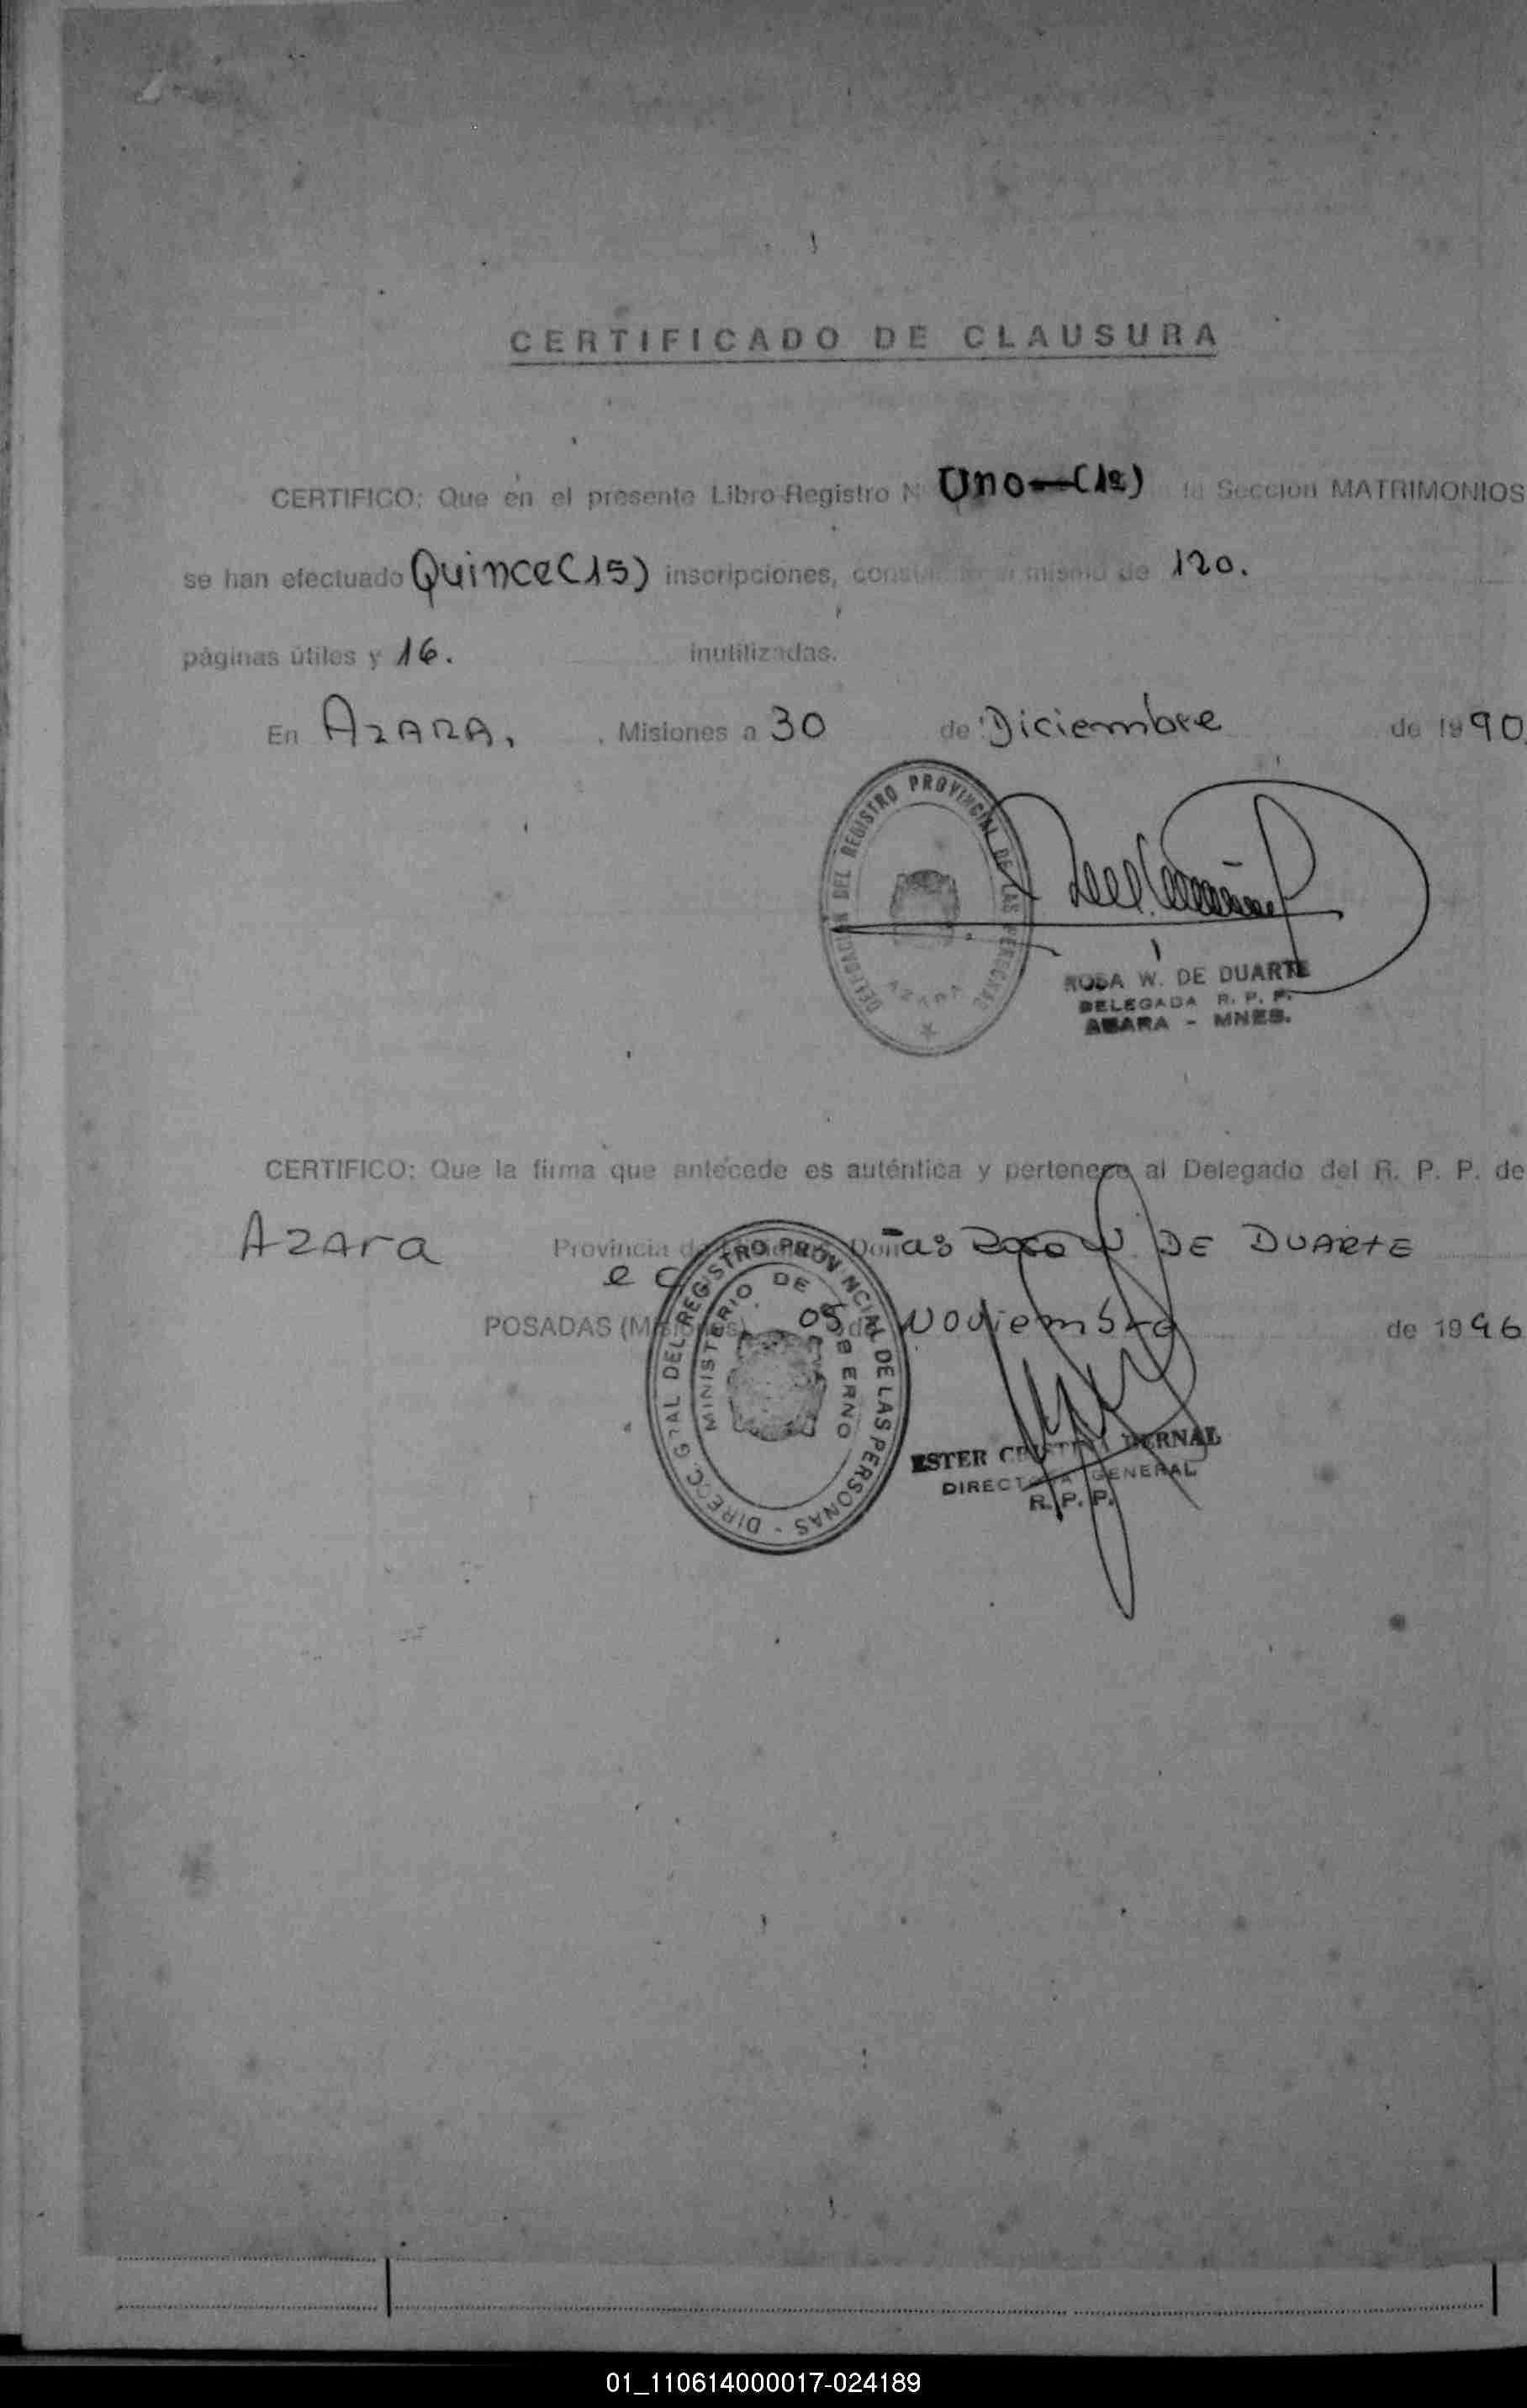 CERTIFICADO DE CLAUSURA
CERTIFICO: Que en el presente Libro Registro N Uno—(1º) la Sección MATRIMONIOS
se han efectuado Quince (15) inscripciones, mismo de 120.
páginas útiles y 16. inutilizadas.
En AZARA, , Misiones a 30 de Diciembre de 1990
DELEGACION DEL REGISTRO PROVINCIAL DE LAS PERSONAS
AZARA
ROSA W. DE DUARTE
DELEGADA R. P. P.
AZARA - MNES.
CERTIFICO: Que la firma que antecede es auténtica y pertenece al Delegado del R. P. P. de
Azara Provincia de Don W. DE DUARTE
POSADAS (Misiones) 05 de Noviembre de 1996
DIRECC. GRAL DEL REGISTRO PROVINCIAL DE LAS PERSONAS
MINISTERIO DE GOBIERNO
ESTER CRISTINA BERNAL
DIRECTORA GENERAL
R. P. P.
01_110614000017-024189